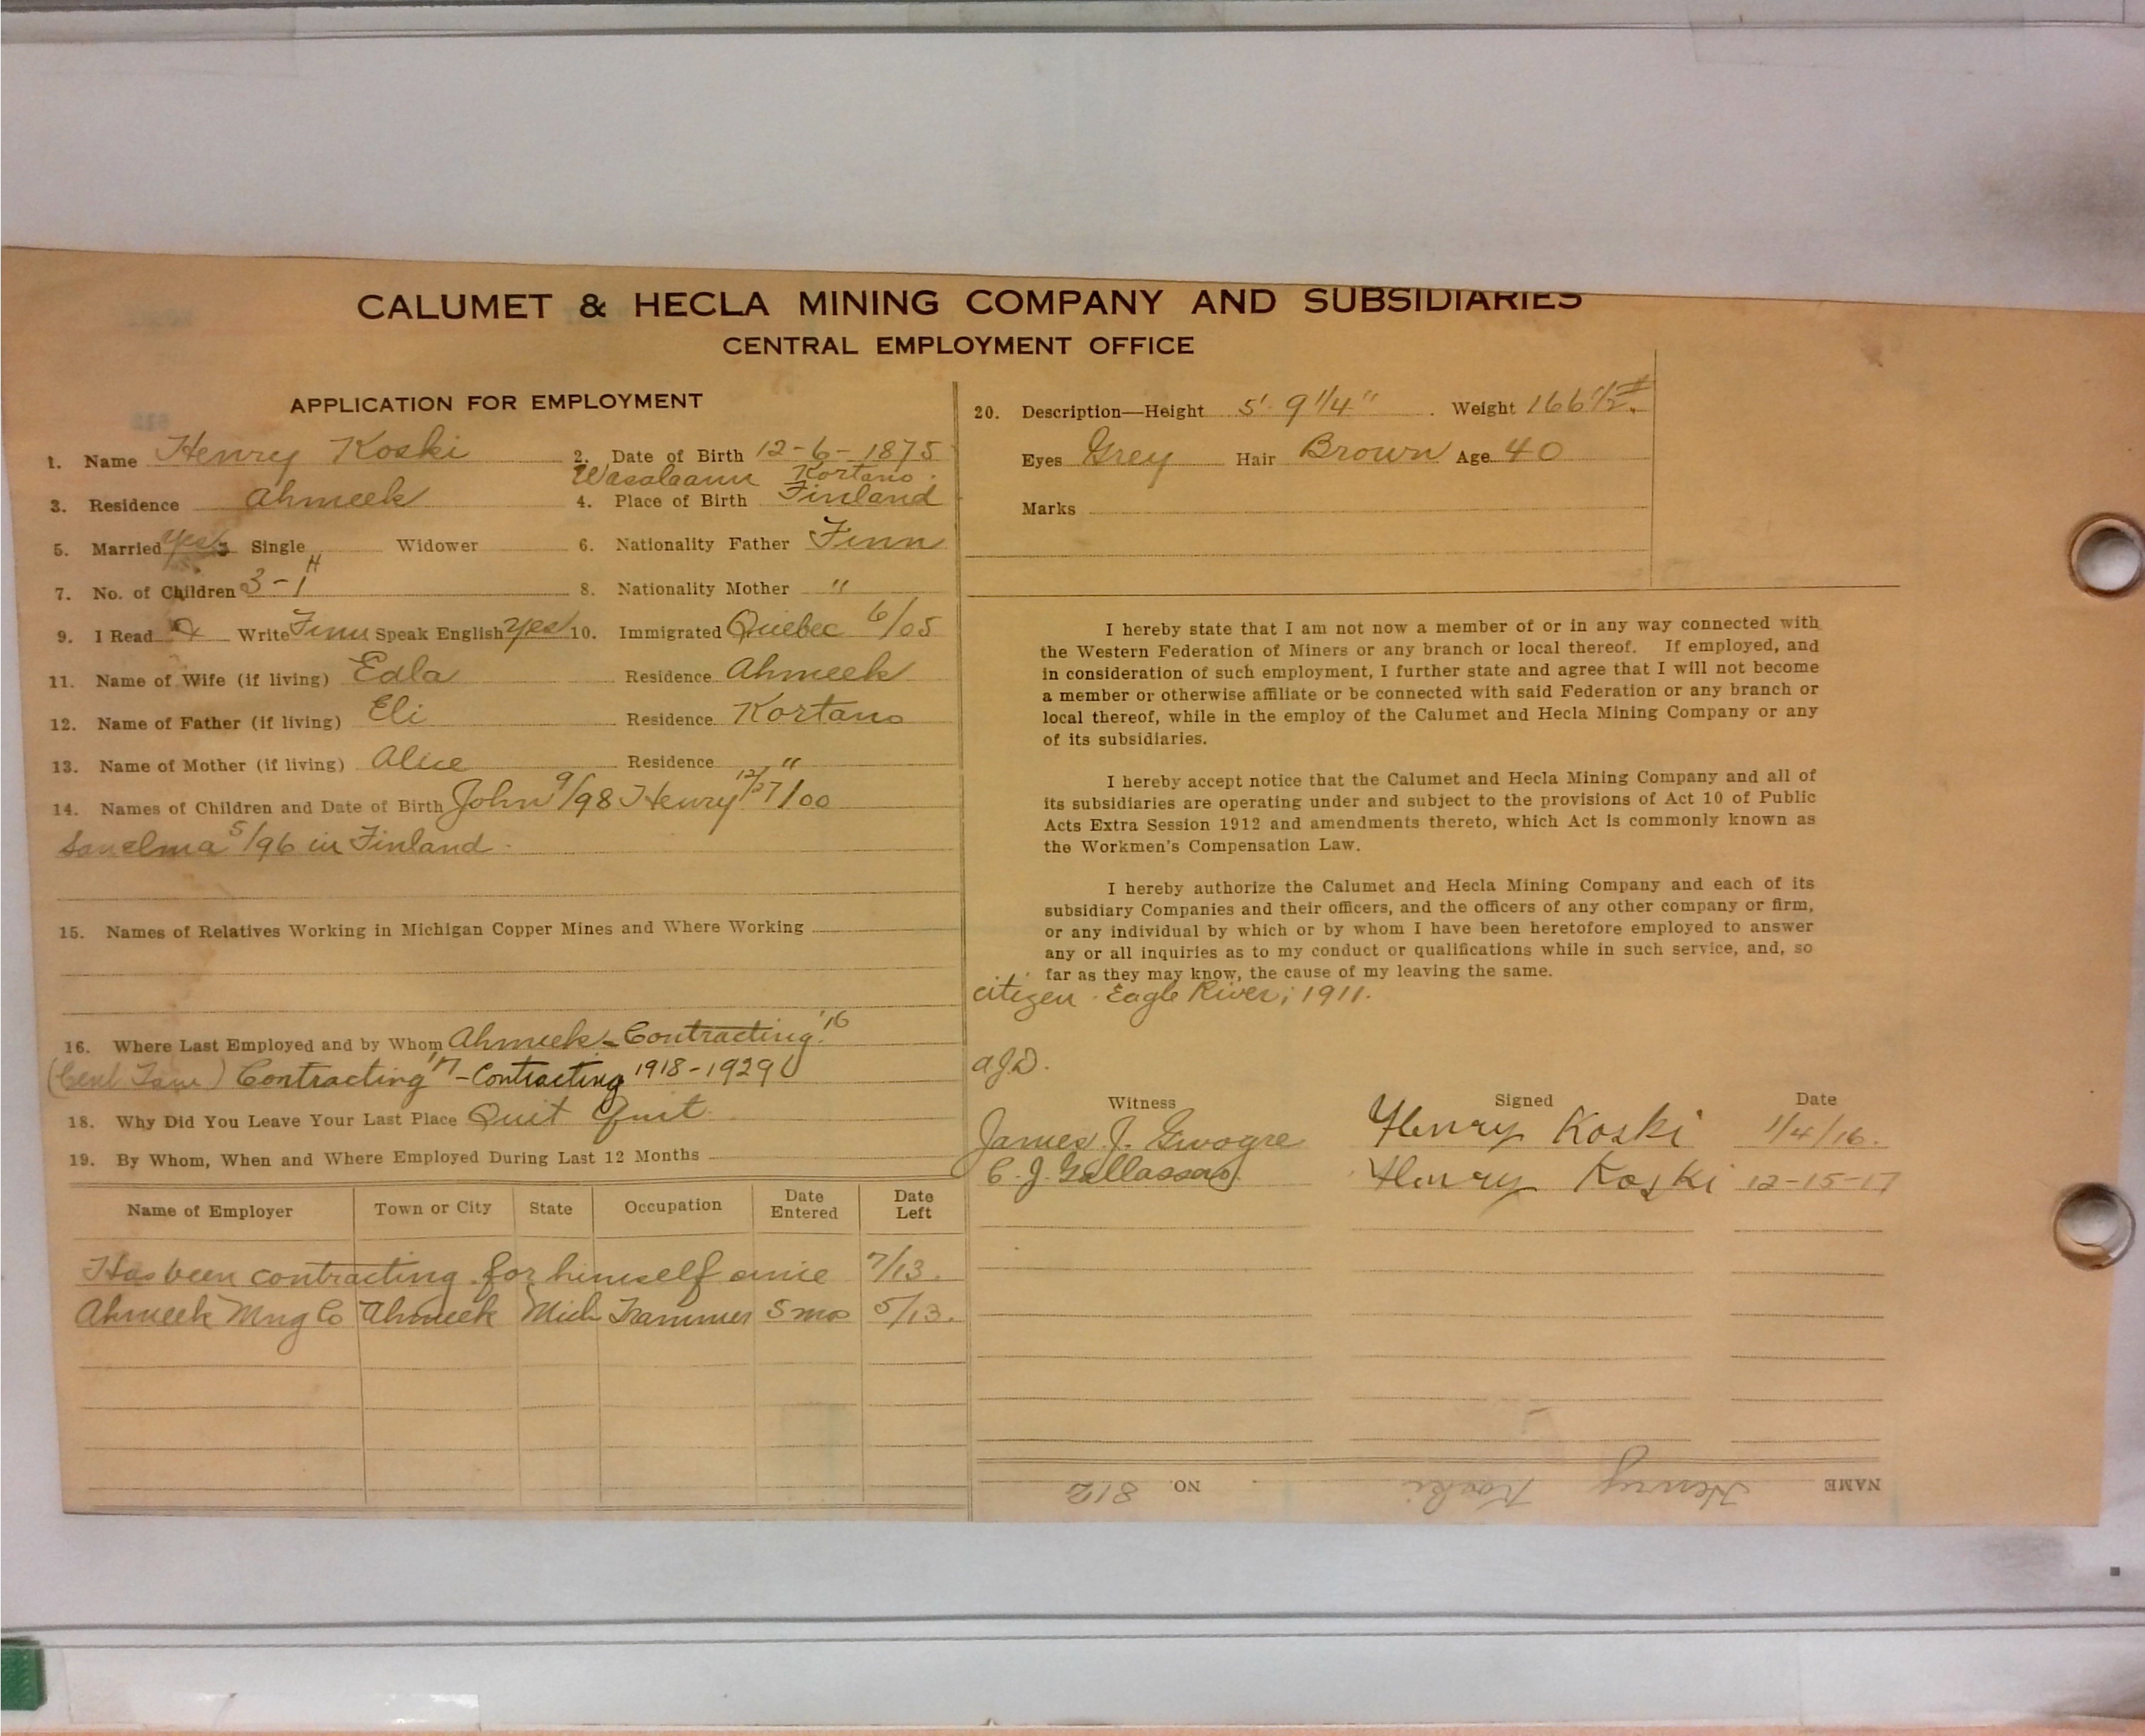 CALUMET & HECLA MINING COMPANY AND SUBSIDIARIES
CENTRAL EMPLOYMENT OFFICE
APPLICATION FOR EMPLOYMENT
1. Name Henry Koski 2. Date of Birth 12-6-1875
Wasalaani Kortano
3. Residence Ahmeek 4. Place of Birth Finland
5. Married yes Single Widower 6. Nationality Father Finn
7. No. of Children 3-1 H 8. Nationality Mother "
9. I Read & Write Finn Speak English yes 10. Immigrated Quebec 6/05
11. Name of Wife (if living) Edla Residence Ahmeek
12. Name of Father (if living) Eli Residence Kortano
13. Name of Mother (if living) Alice Residence "
14. Names of Children and Date of Birth John 9/98 Henry 12/27/00
Sanelma 5/96 in Finland.
15. Names of Relatives Working in Michigan Copper Mines and Where Working
16. Where Last Employed and by Whom Ahmeek - Contracting '16
Contracting '17 - Contracting 1918-1929
18. Why Did You Leave Your Last Place Quit Quit
19. By Whom, When and Where Employed During Last 12 Months
Name of Employer Town or City State Occupation Date Entered Date Left
Has been contracting for himself since 7/13.
Ahmeek Mng Co Ahmeek Mich Trammer 5 mos 5/13.
20. Description—Height 5' 9 1/4" Weight 166 1/2 #
Eyes Grey Hair Brown Age 40
Marks
I hereby state that I am not now a member of or in any way connected with
the Western Federation of Miners or any branch or local thereof. If employed, and
in consideration of such employment, I further state and agree that I will not become
a member or otherwise affiliate or be connected with said Federation or any branch or
local thereof, while in the employ of the Calumet and Hecla Mining Company or any
of its subsidiaries.
I hereby accept notice that the Calumet and Hecla Mining Company and all of
its subsidiaries are operating under and subject to the provisions of Act 10 of Public
Acts Extra Session 1912 and amendments thereto, which Act is commonly known as
the Workmen's Compensation Law.
I hereby authorize the Calumet and Hecla Mining Company and each of its
subsidiary Companies and their officers, and the officers of any other company or firm,
or any individual by which or by whom I have been heretofore employed to answer
any or all inquiries as to my conduct or qualifications while in such service, and, so
far as they may know, the cause of my leaving the same.
citizen. Eagle River, 1911.
a.J.D.
Witness Signed Date
James J. Henry Koski 1/4/16.
C. J. Henry Koski 12-15-17
NAME Henry Koski NO. 812